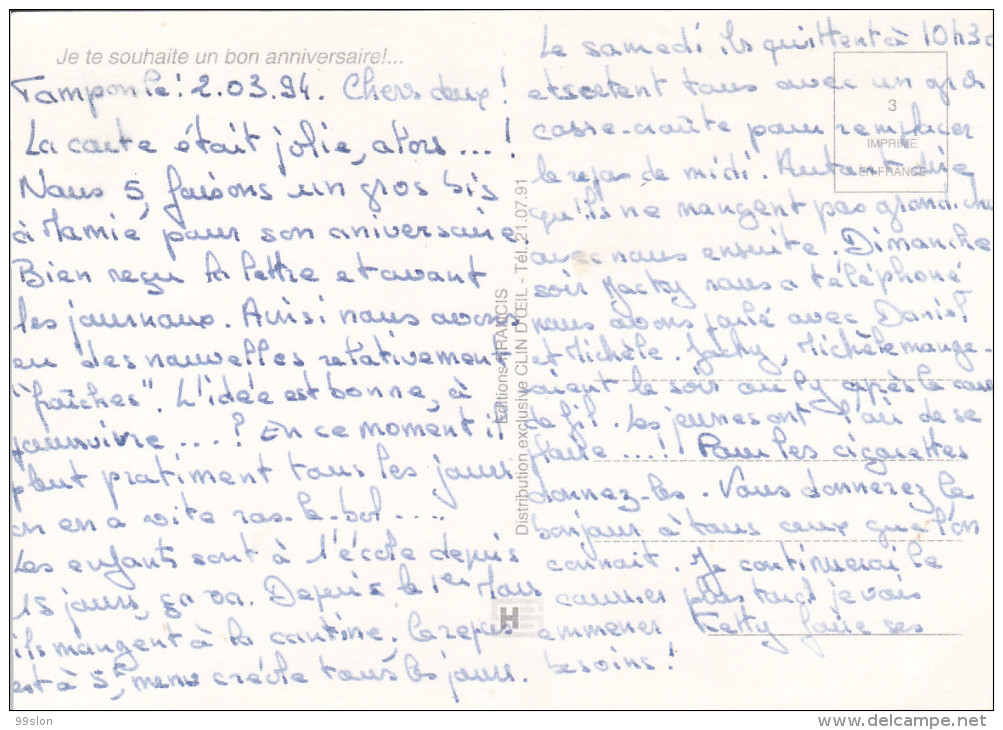 Je te souhaite un bon anniversaire!...
Tampon le : 2.03.94. Chers deux !
La carte était jolie, alors .... !
Nous 5, faisons un gros bis
à Mamie pour son aniversaire.
Bien reçu la lettre et avant
les journaux. Ainsi nous avons
eu des nouvelles relativement
"fraîches". L'idée est bonne, à
poursuivre .... ? En ce moment il
pleut pratiment tous les jours
on en a vite ras-le-bol ....
Les enfants sont à l'école depuis
15 jours, ça va. Depuis le 1er Mars
ils mangent à la cantine. le repas
est à 5F, menu créole tous les jours.
Le samedi ils quittent à 10h30
et sortent tous avec un gros
casse-croûte pour remplacer
le repas de midi. Autant dire
qu'ils ne mangent pas grand chose
avec nous ensuite. Dimanche
soir Jacky nous a téléphoné
nous avons parlé avec Daniel
et Michèle. Jacky, Michèle mange-
aient le soir au après le coup
de fil. Les jeunes ont l'air de se
plaire ....! Pour les cigarettes
donnez-les. Vous donnerez le
bonjour à tous ceux que l'on
connait. Je continuerai le
courrier plus tard je vais
emmener Ketty faire ses
besoins !
Editions FRANCIS
Distribution exclusive CLIN D'ŒIL - Tél. 21.07.91
H
3
IMPRIMÉ
EN FRANCE
99slon
delcampe.net